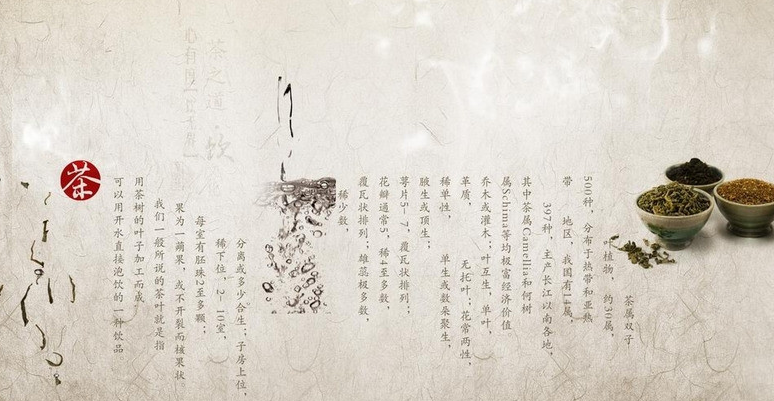 茶属双子
叶植物，约30属，
500种，分布于热带和亚热
带　地区，我国有14属，
397种，主产长江以南各地，
其中茶属Camellia和何树
属Schima等均极富经济价值
乔木或灌木；叶互生，单叶，
革质，无托叶；花常两性，
稀单性，单生或数朵聚生，
腋生或顶生；
萼片5-7，覆瓦状排列；
花瓣通常5，稀4至多数，
覆瓦状排列；雄蕊极多数，
稀少数，
分离或多少合生；子房上位，
稀下位，2-10室，
每室有胚珠2至多颗；
果为一蒴果，或不开裂而核果状
我们一般所说的茶叶就是指
用茶树的叶子加工而成，
可以用开水直接泡饮的一种饮品
茶
茶之道